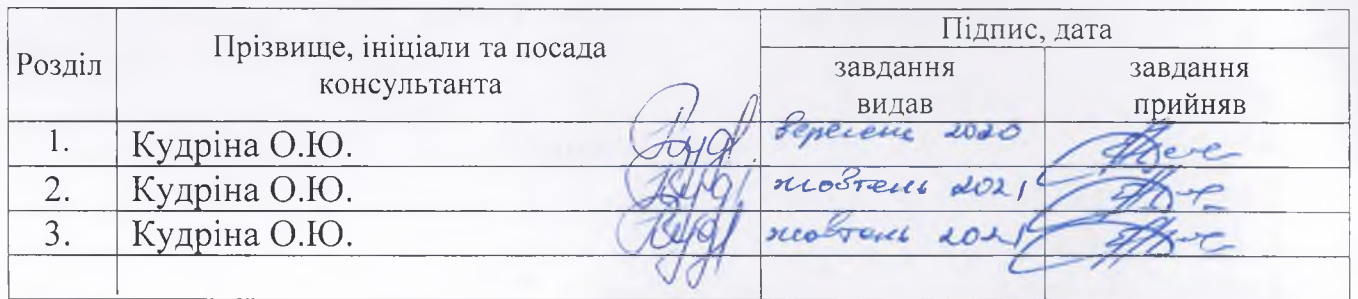 Розділ
Прізвище, ініціали та посада
консультанта
Підпис, дата
завдання
видав
завдання
прийняв
1.
Кудріна О.Ю.
вересень 2020
2.
Кудріна О.Ю.
жовтень 2021
3.
Кудріна О.Ю.
жовтень 2021